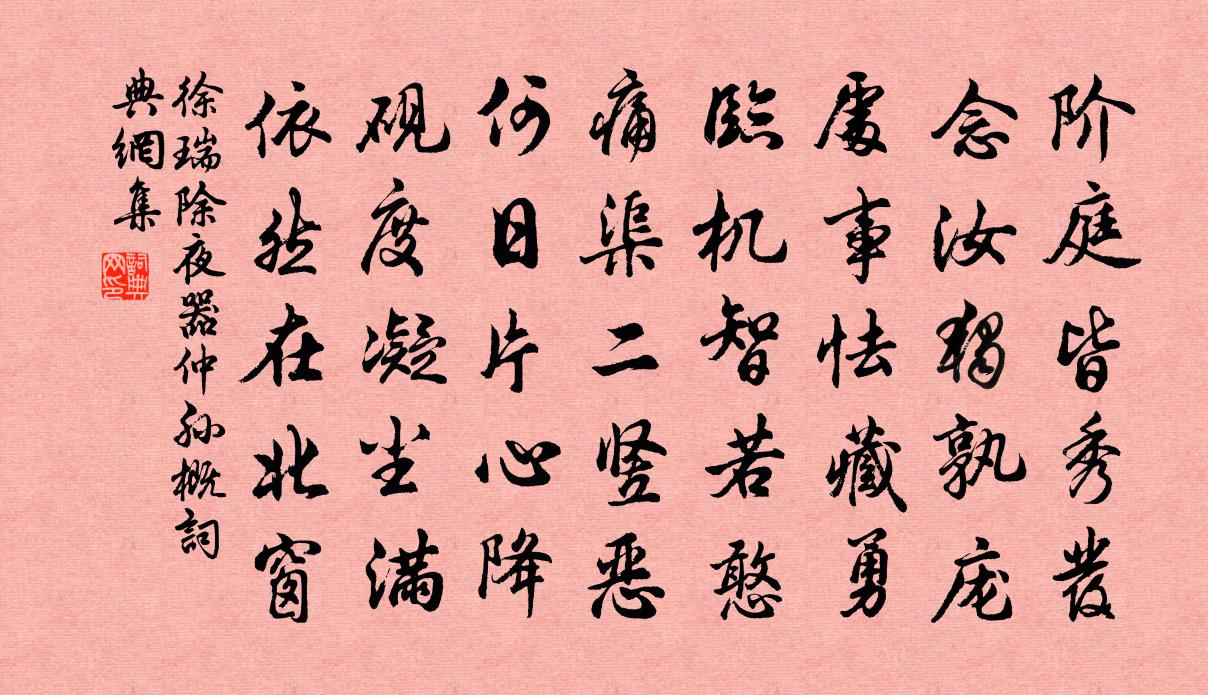 阶庭皆秀發
念汝独孰庞
處事怯藏勇
臨机智若憨
痛渠二竖恶
何日片心降
砚度凝尘满
依然在北窗
徐瑞除夜器仲孙概詞
典網集
詞典网印